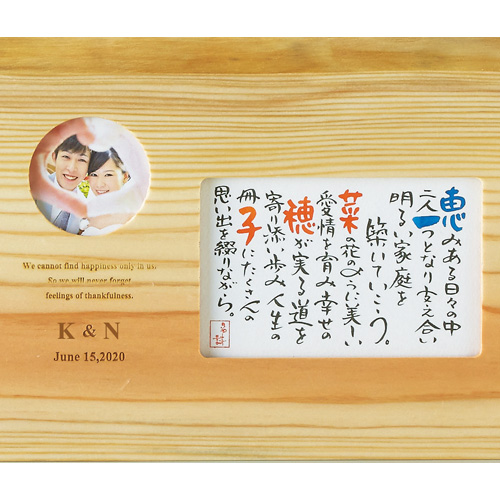 We cannot find happiness only in us.
So we will never forget
feelings of thankfulness.
K & N
June 15,2020
恵みある日々の中
二人一つとなり支え合い
明るい家庭を
築いていこう。
菜の花のように美しい
愛情を育み幸せの
穂が実る道を
寄り添い歩み人生の
冊子にたくさんの
思い出を綴りながら。